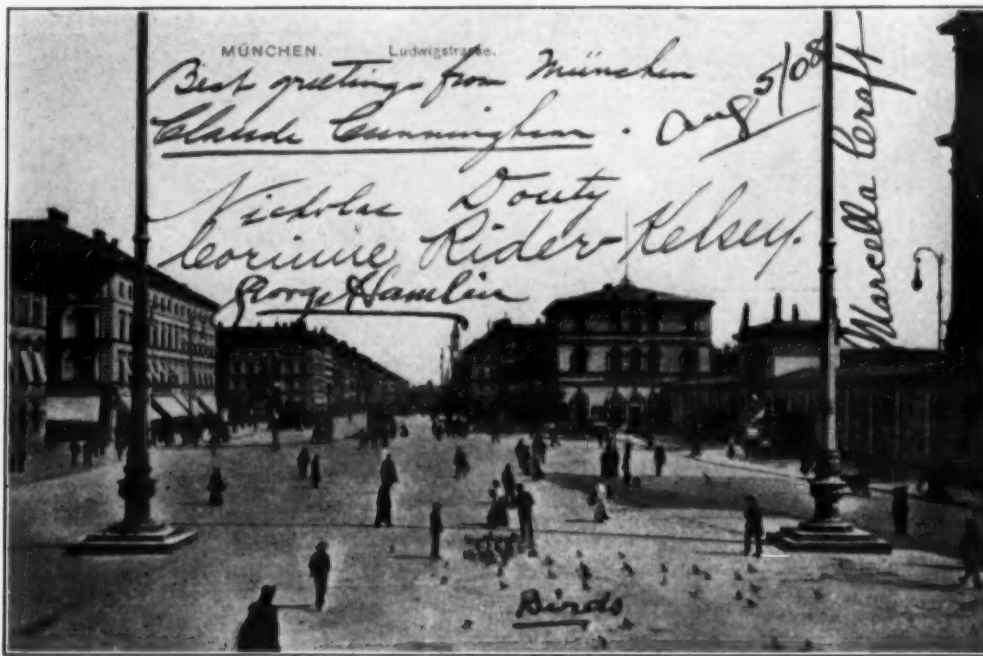 MÜNCHEN. Ludwigstrasse.
Best greetings from München
Claude Cunningham. Aug 5/08
Nicholas Douty
Corinne Rider-Kelsey.
George Hamlin
Marcella Craft
Birds